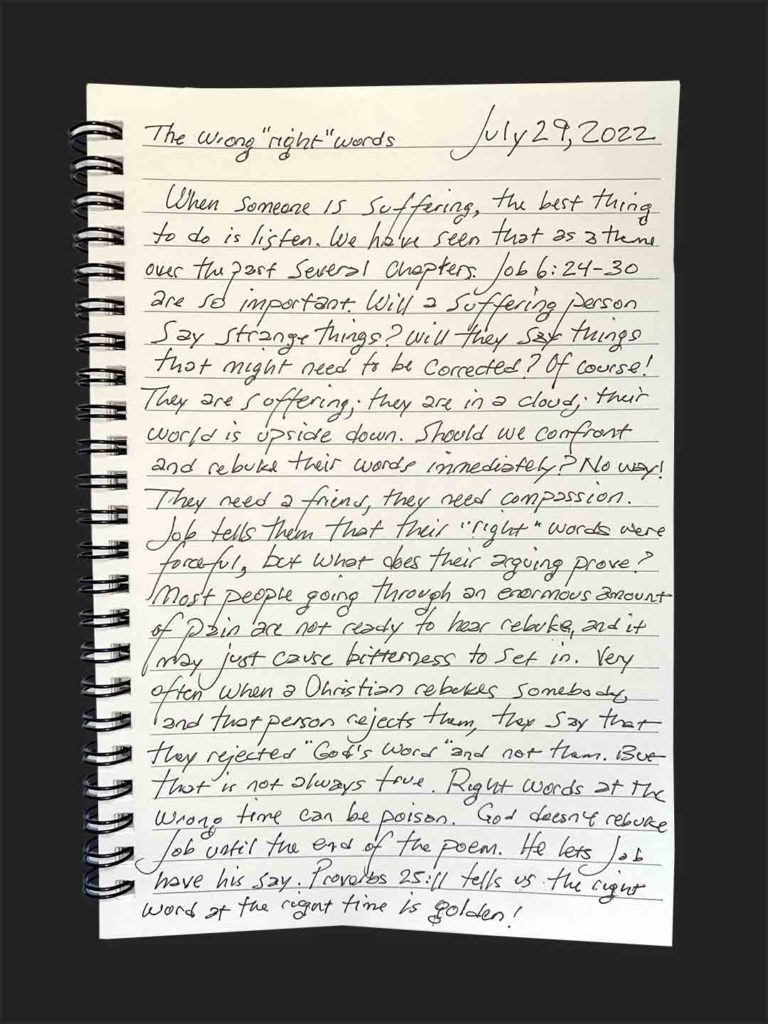 The wrong "right" words July 29, 2022
When someone is suffering, the best thing
to do is listen. We have seen that as a theme
over the past several chapters. Job 6:24-30
are so important. Will a suffering person
say strange things? Will they say things
that might need to be corrected? Of course!
They are suffering; they are in a cloud; their
world is upside down. Should we confront
and rebuke their words immediately? No way!
They need a friend, they need compassion.
Job tells them that their "right" words were
forceful, but what does their arguing prove?
Most people going through an enormous amount
of pain are not ready to hear rebuke, and it
may just cause bitterness to set in. Very
often when a Christian rebukes somebody,
and that person rejects them, they say that
they rejected "God's word" and not them. But
that is not always true. Right words at the
wrong time can be poison. God doesn't rebuke
Job until the end of the poem. He lets Job
have his say. Proverbs 25:11 tells us the right
word at the right time is golden!